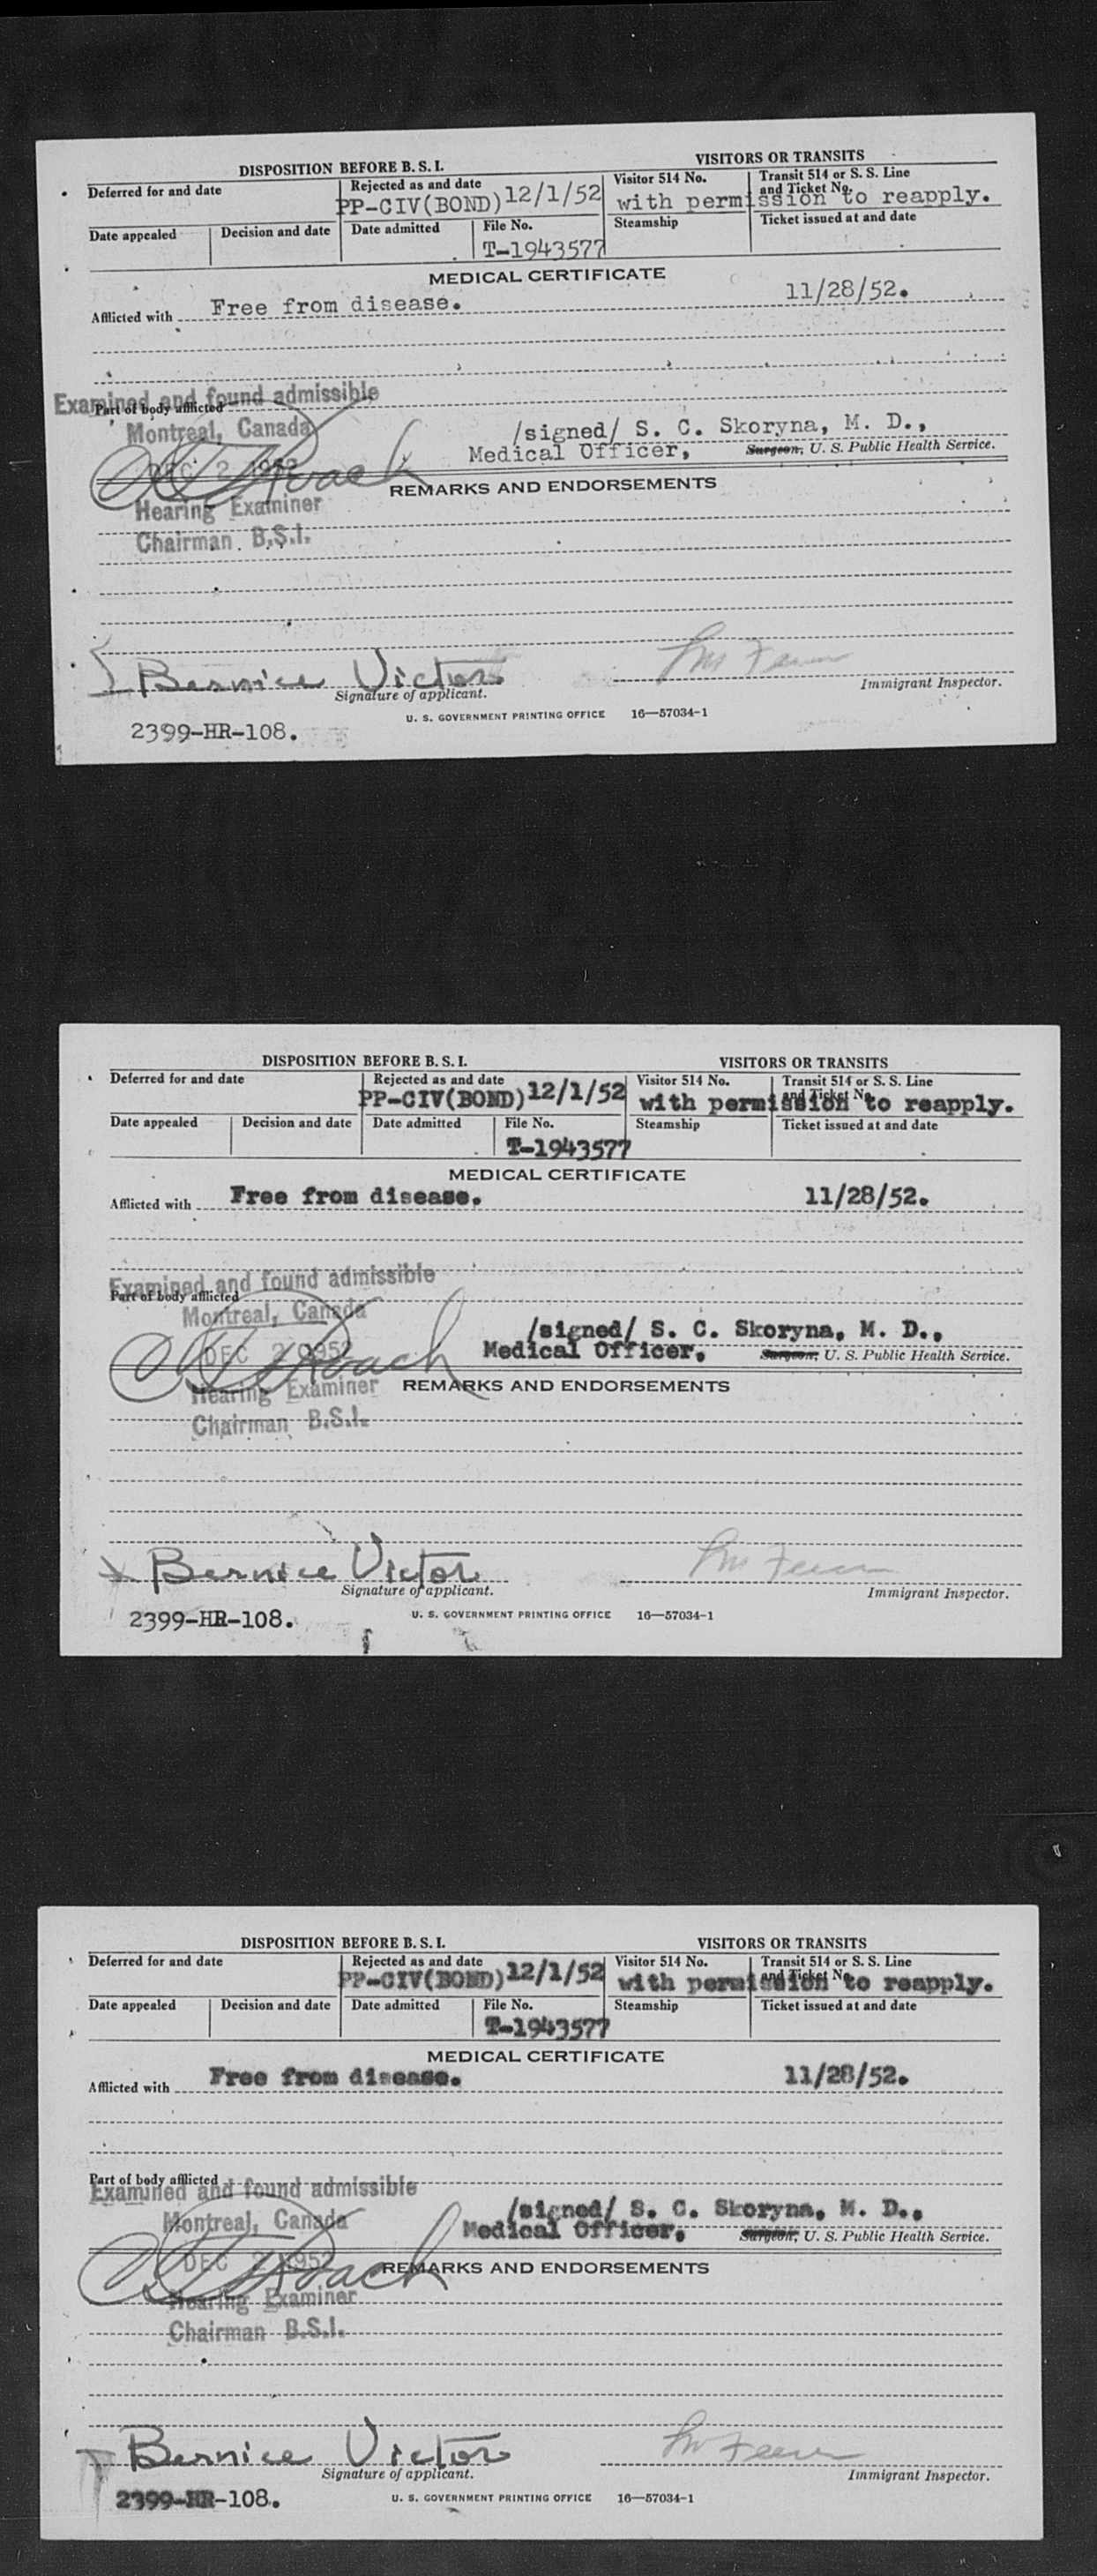 DISPOSITION BEFORE B. S. I. VISITORS OR TRANSITS
Deferred for and date Rejected as and date Visitor 514 No. Transit 514 or S. S. Line and Ticket No.
PP-CIV(BOND) 12/1/52 with permission to reapply.
Date appealed Decision and date Date admitted File No. Steamship Ticket issued at and date
T-1943577
MEDICAL CERTIFICATE
Afflicted with Free from disease. 11/28/52.
Examined and found admissible
Part of body afflicted
Montreal, Canada
/signed/ S. C. Skoryna, M. D.,
DEC 2 1952
Medical Officer, Surgeon, U. S. Public Health Service.
REMARKS AND ENDORSEMENTS
Hearing Examiner
Chairman B.S.I.
Bernice Victor
Signature of applicant. Immigrant Inspector.
U. S. GOVERNMENT PRINTING OFFICE 16—57034-1
2399-HR-108.
DISPOSITION BEFORE B. S. I. VISITORS OR TRANSITS
Deferred for and date Rejected as and date Visitor 514 No. Transit 514 or S. S. Line and Ticket No.
PP-CIV(BOND) 12/1/52 with permission to reapply.
Date appealed Decision and date Date admitted File No. Steamship Ticket issued at and date
T-1943577
MEDICAL CERTIFICATE
Afflicted with Free from disease. 11/28/52.
Examined and found admissible
Part of body afflicted
Montreal, Canada
/signed/ S. C. Skoryna, M. D.,
DEC 2 1952
Medical Officer, Surgeon, U. S. Public Health Service.
Hearing Examiner REMARKS AND ENDORSEMENTS
Chairman B.S.I.
Bernice Victor
Signature of applicant. Immigrant Inspector.
2399-HR-108. U. S. GOVERNMENT PRINTING OFFICE 16—57034-1
DISPOSITION BEFORE B. S. I. VISITORS OR TRANSITS
Deferred for and date Rejected as and date Visitor 514 No. Transit 514 or S. S. Line and Ticket No.
PP-CIV(BOND) 12/1/52 with permission to reapply.
Date appealed Decision and date Date admitted File No. Steamship Ticket issued at and date
T-1943577
MEDICAL CERTIFICATE
Afflicted with Free from disease. 11/28/52.
Part of body afflicted
Examined and found admissible
Montreal, Canada
/signed/ S. C. Skoryna, M. D.,
Medical Officer, Surgeon, U. S. Public Health Service.
DEC 2 1952
REMARKS AND ENDORSEMENTS
Hearing Examiner
Chairman B.S.I.
Bernice Victor
Signature of applicant. Immigrant Inspector.
2399-HR-108. U. S. GOVERNMENT PRINTING OFFICE 16—57034-1